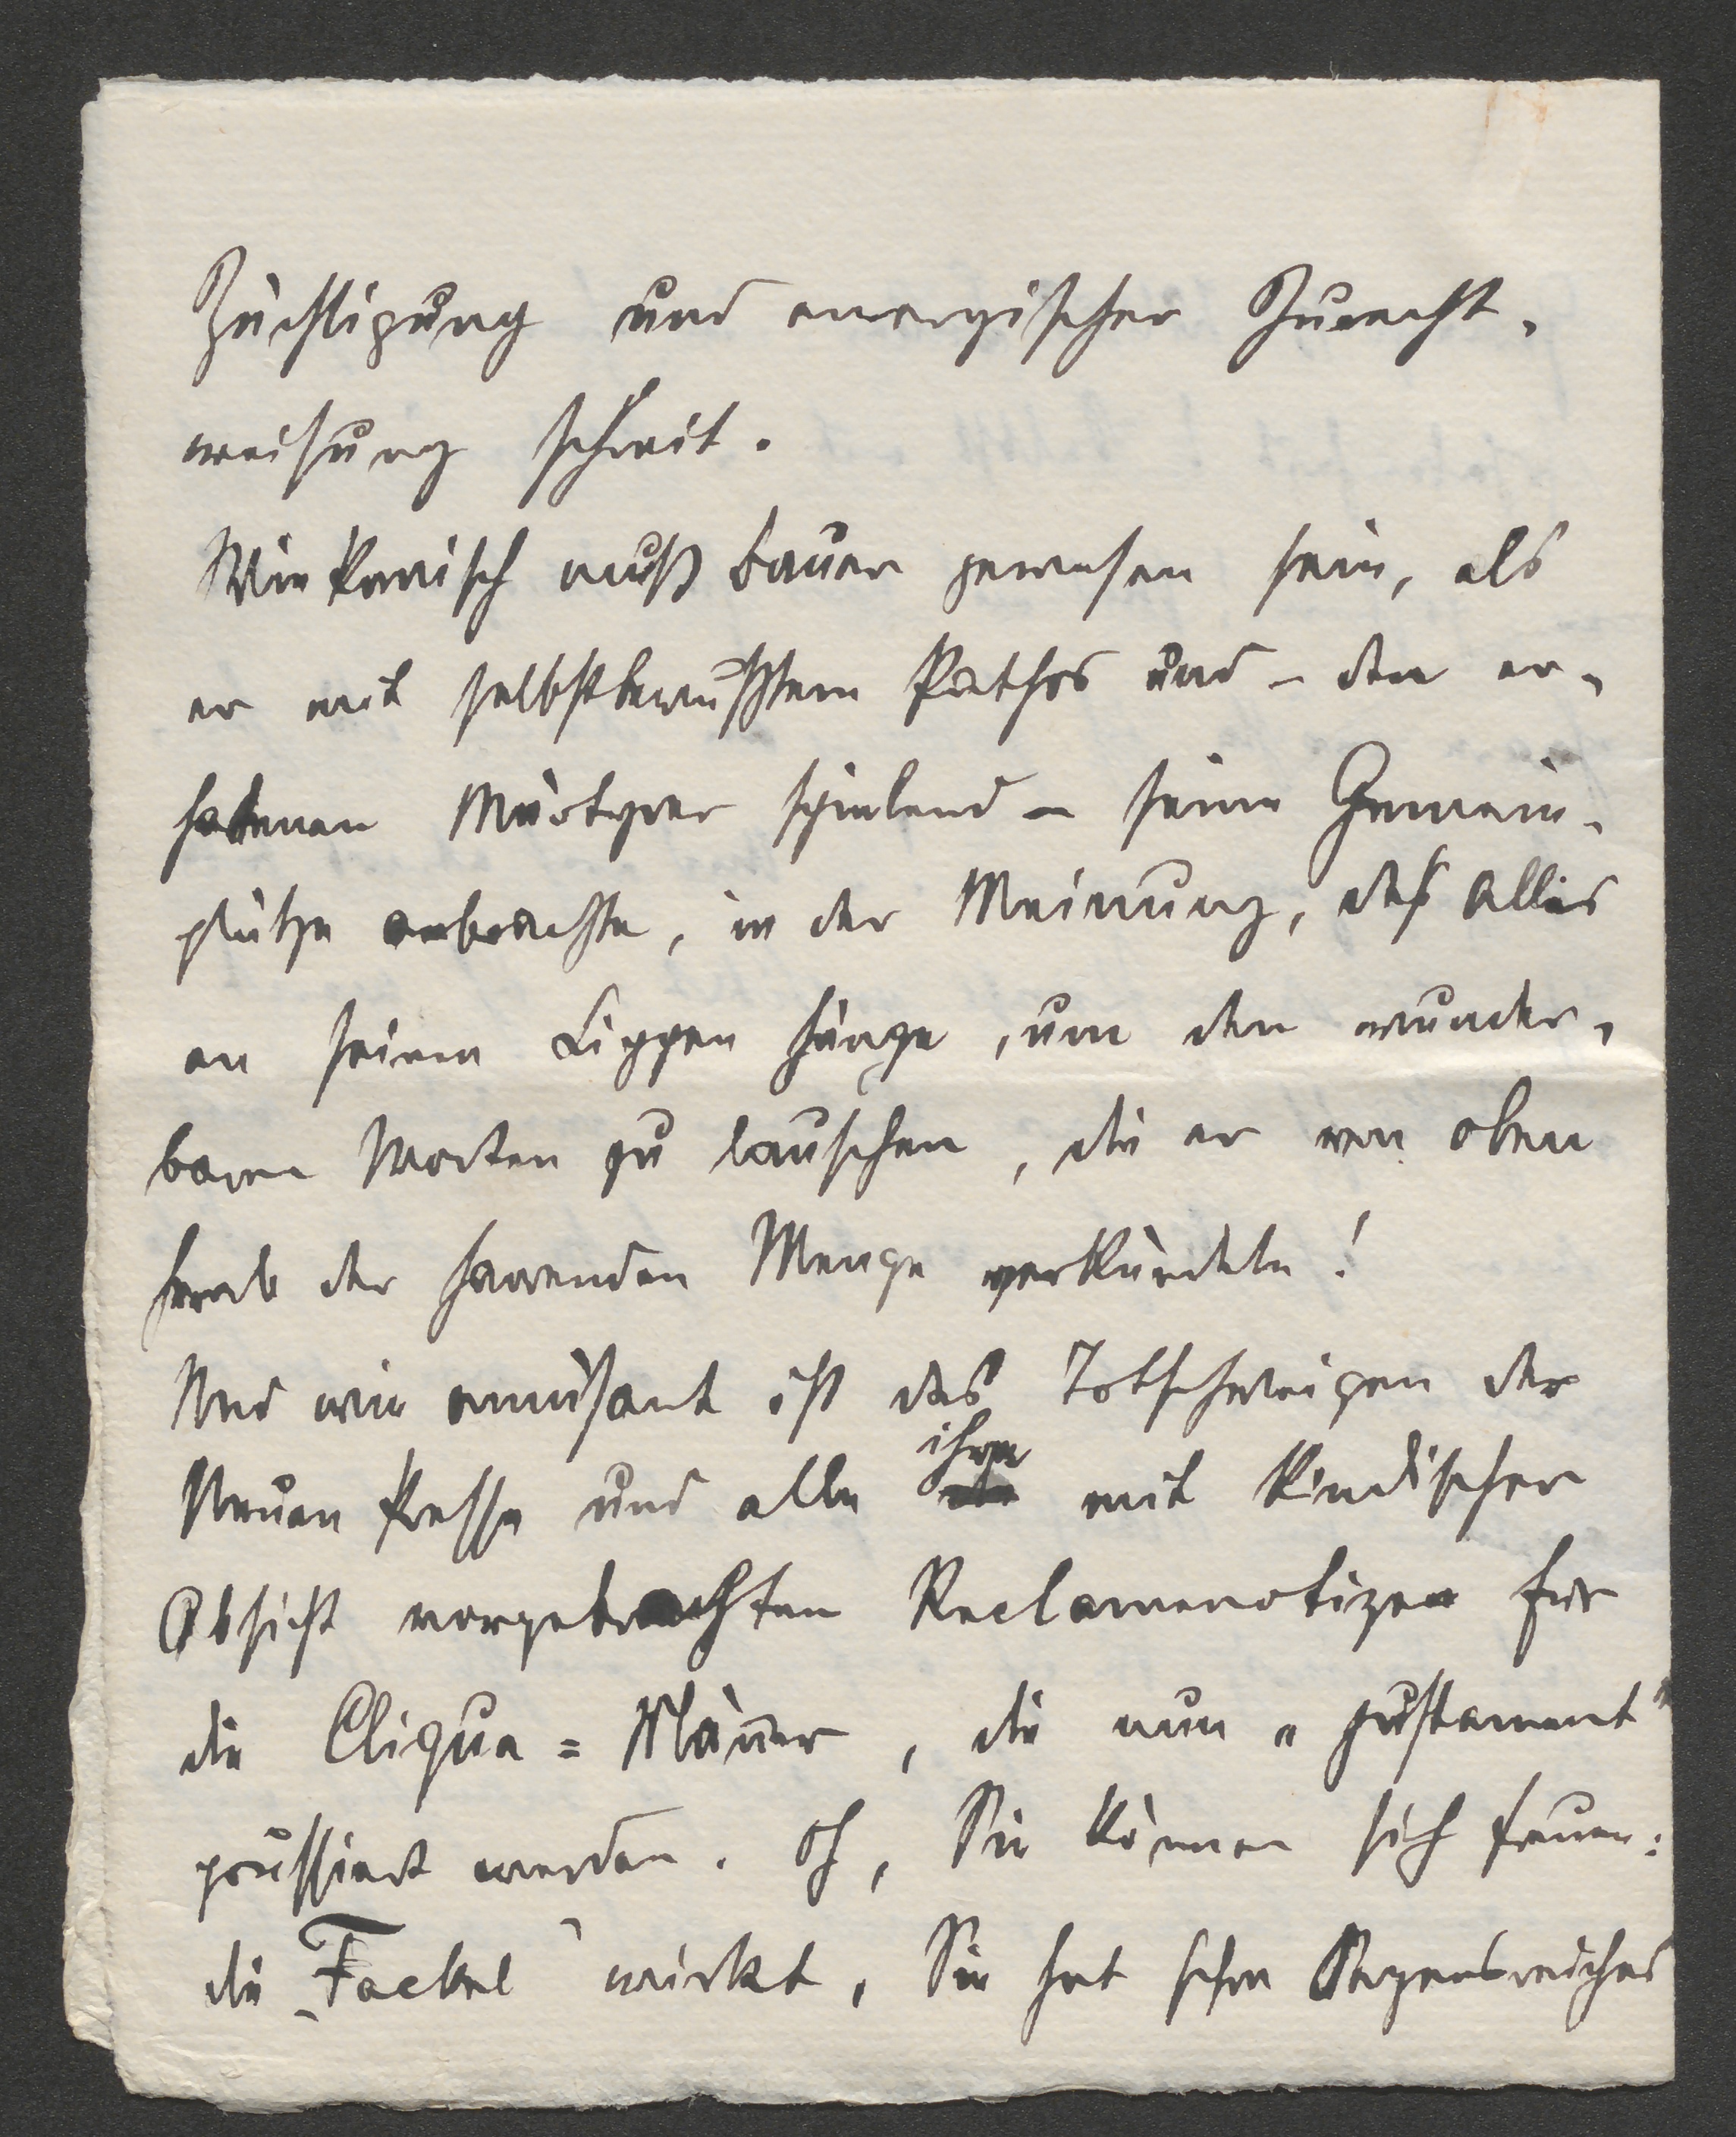 Züchtigung und energischer Zurecht-
weisung schreit.
Wie komisch muß Bauer gewesen sein, als
er mit selbstbewußtem Pathos und – den er-
habenen Märtyrer spielend – seine Gemein-
plätze anbrachte, in der Meinung, daß Alles
an seinen Lippen hänge, um den wunder-
baren Worten zu lauschen, die er von oben
herab der harrenden Menge verkündete!
Und wie amüsant ist das Totschweigen der
Neuen Presse und alle ihre mit kindischer
Absicht vorgebrachten Reclamenotizen für
die Clique=Männer, die nun „justament"
poussiert werden. Oh, Sie können sich freuen:
die „Fackel" wirkt, Sie hat schon Segensreiches